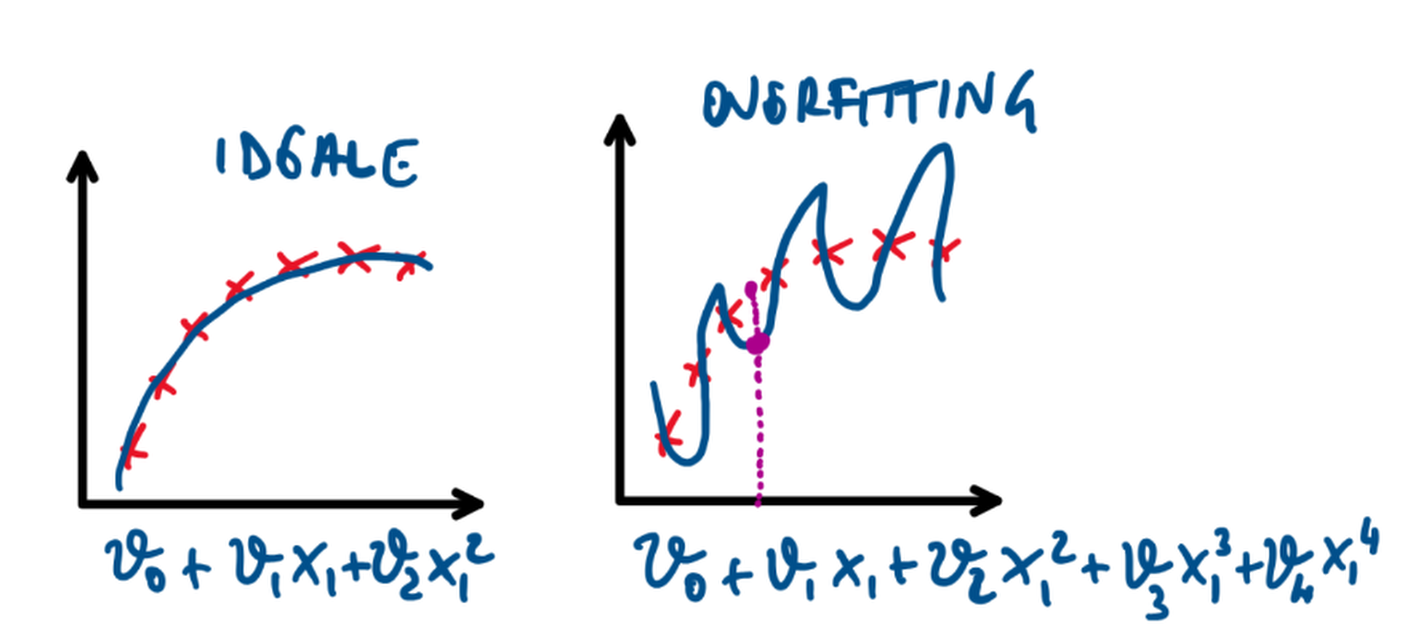 IDEALE
ϑ₀ + ϑ₁x₁+ϑ₂x₁²
OVERFITTING
ϑ₀ + ϑ₁x₁ + ϑ₂x₁² + ϑ₃x₁³ + ϑ₄x₁⁴